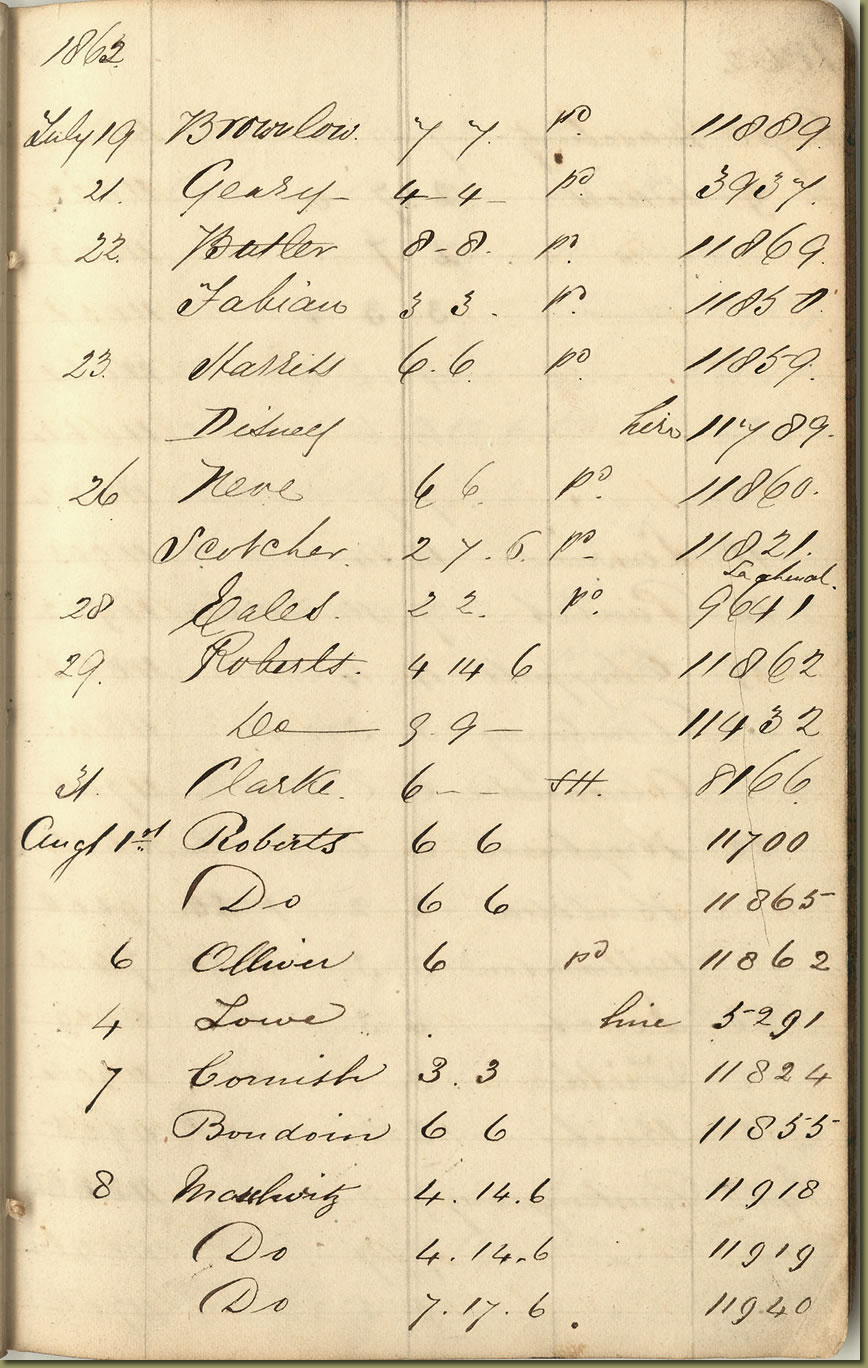 1862
July 19 Brownlow. 7 7. pd 11889.
21. Geary - 4 - 4 - pd. 3937.
22. Butler 8 - 8. pd. 11869.
Fabian 3 3. pd. 11850.
23. Harris 6. 6. pd 11859.
Disney hire 11789.
26 Neve 6 6. pd. 11860.
Scotcher. 2 7. 6. pd. 11821.
28 Eales. 2 2. pd. 9641
29. Roberts. 4 14 6 11862
Do 9. 9 - 11432
31. Clarke. 6 - - SH. 8166
Augt 1st Roberts 6 6 11700
Do 6 6 11865
6 Olliver 6 pd 11862
4 Lowe . hire 5291
7 Cornish 3. 3 11824
Boudoin 6 6 11855
8 4. 14. 6 11918
Do 4. 14. 6 11919
Do 7. 17. 6 11940